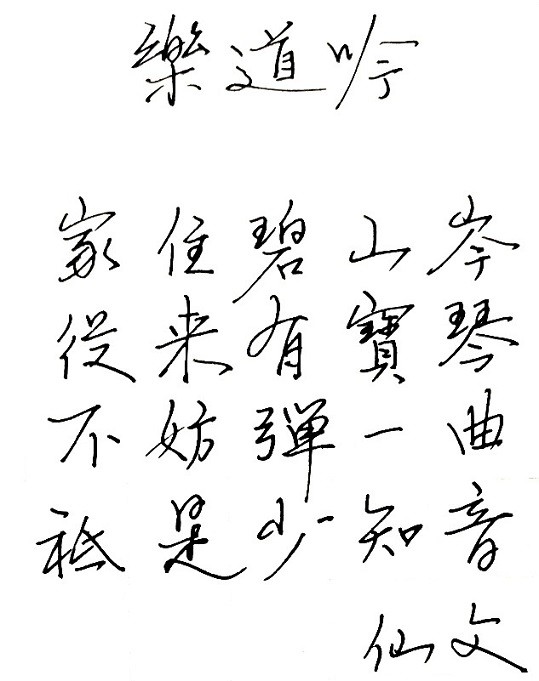 樂道吟
家住碧山岑
從来有寶琴
不妨彈一曲
祗是少知音
仙文